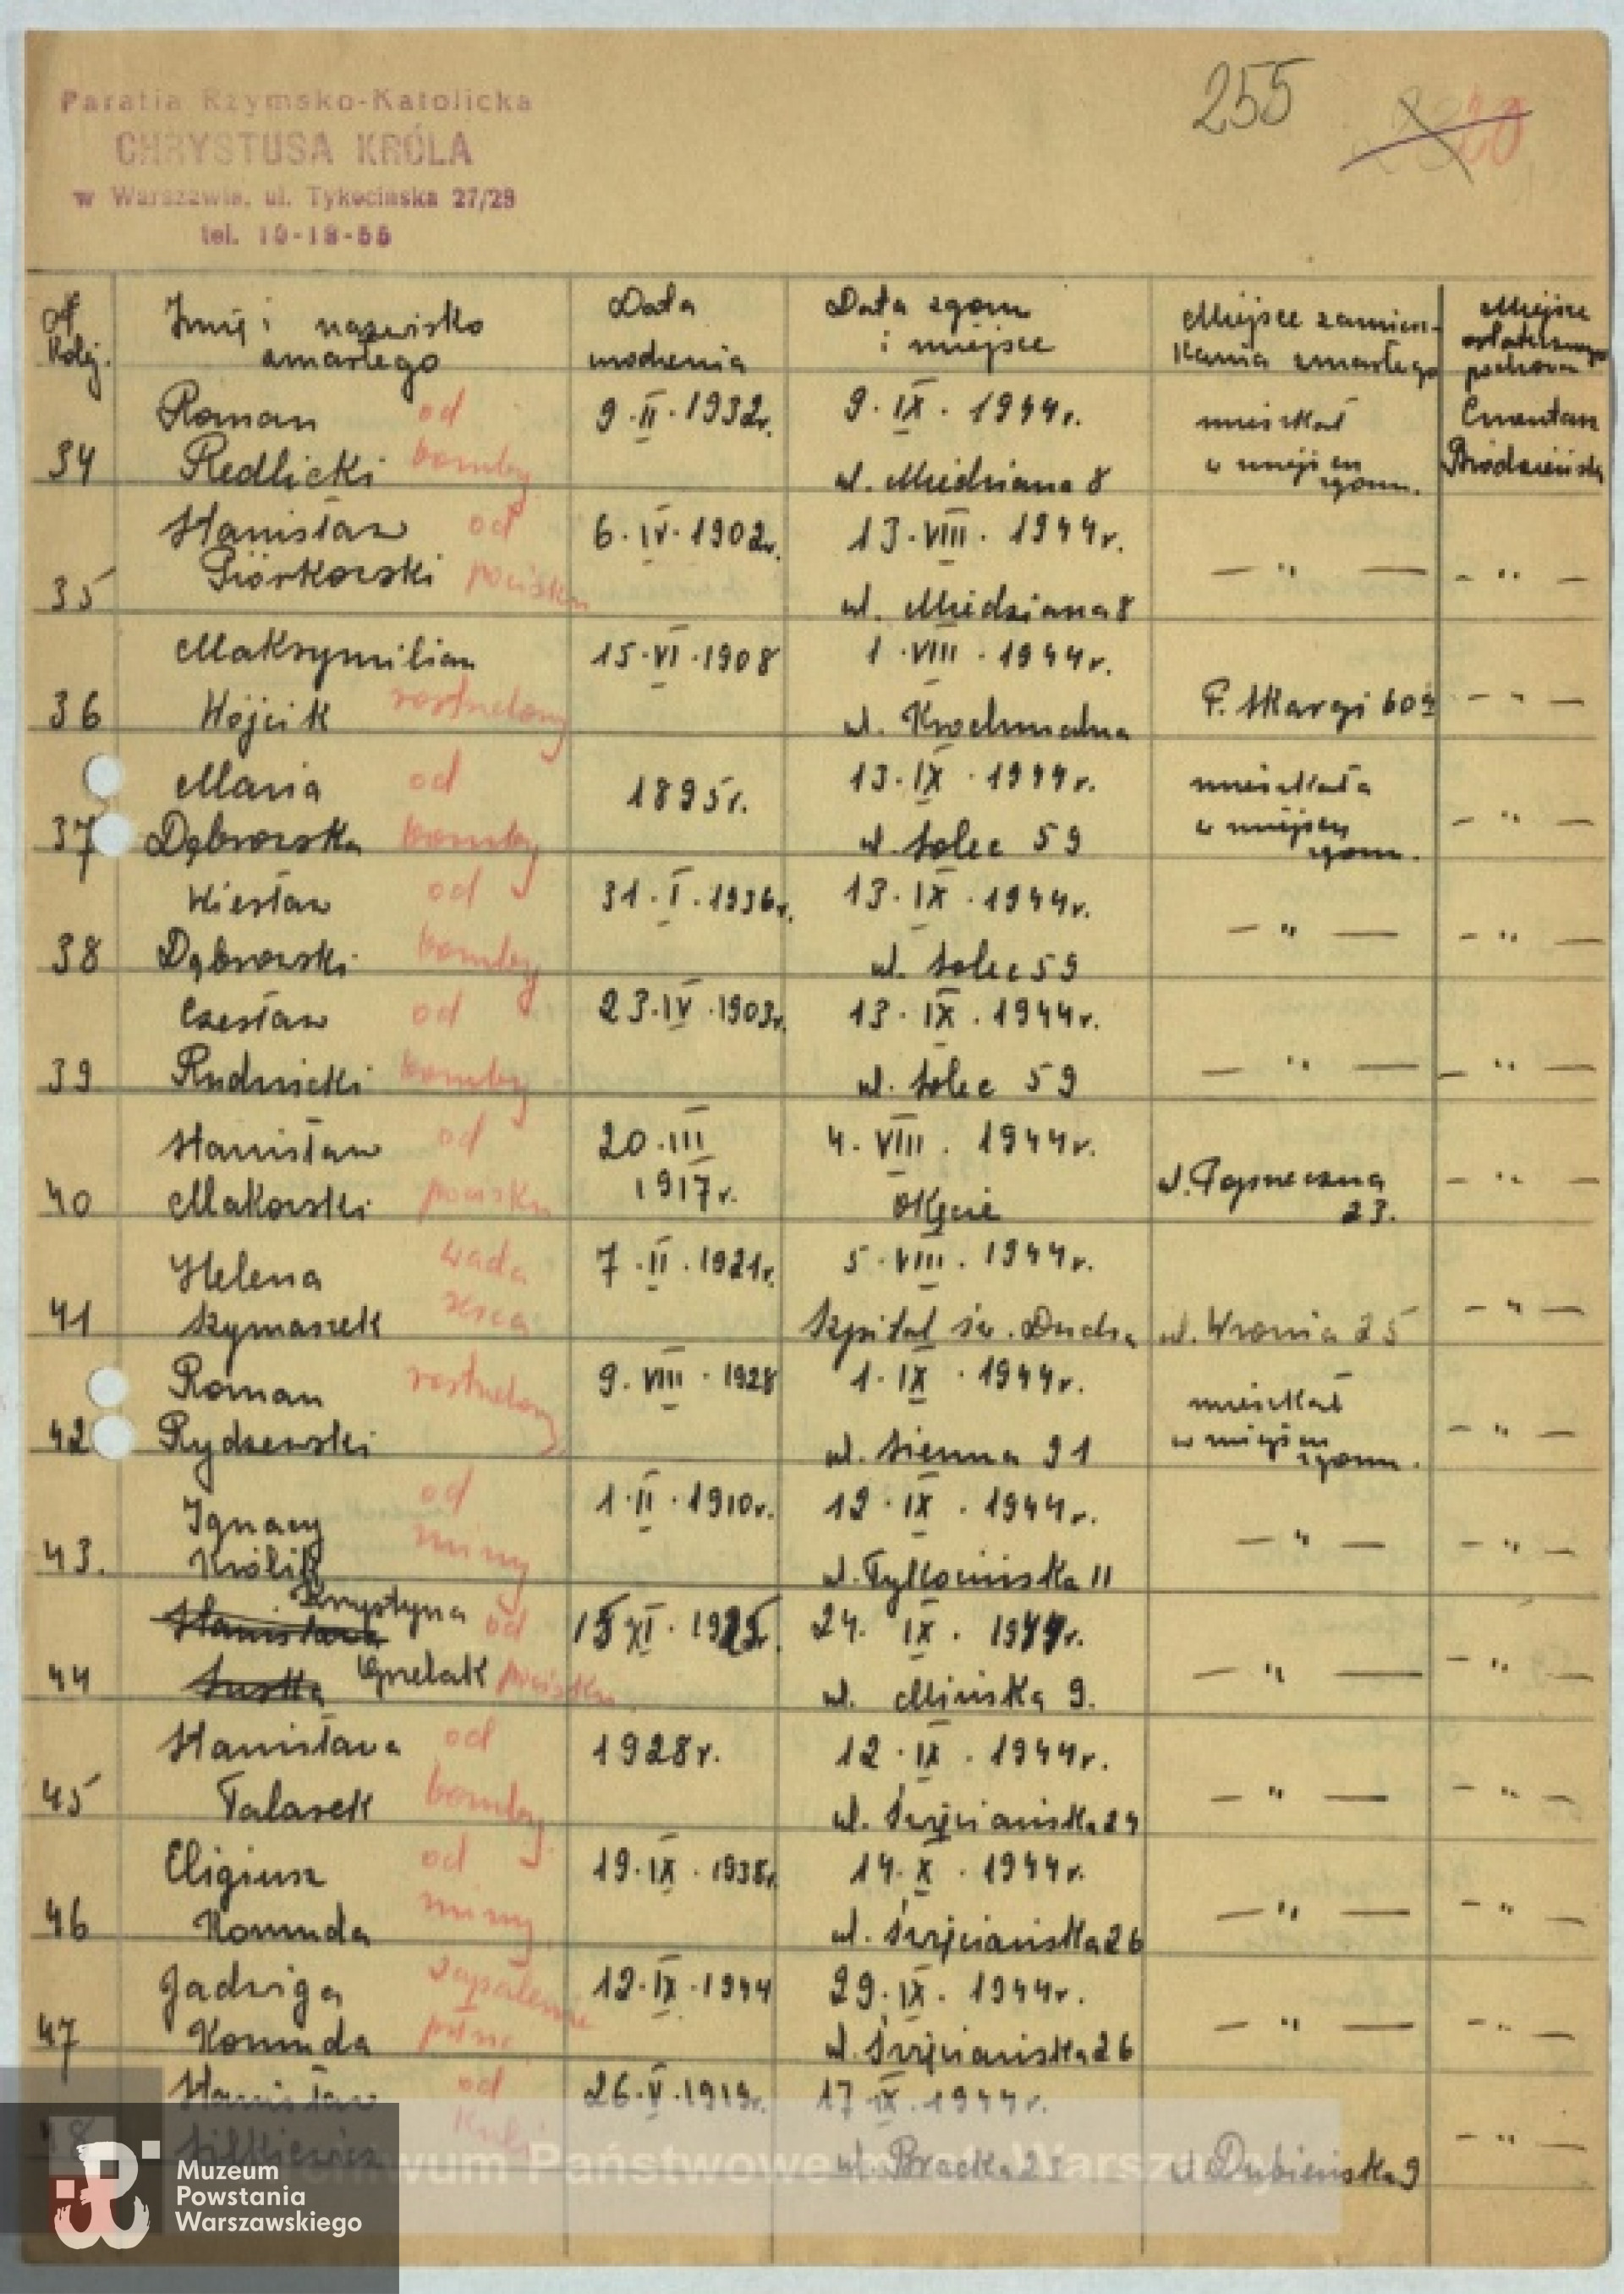 Parafia Rzymsko-Katolicka
CHRYSTUSA KRÓLA
w Warszawie, ul. Tykocińska 27/29
tel. 10-18-55
255
№ kolej. Imię i nazwisko zmarłego Data urodzenia Data zgonu i miejsce Miejsce zamieszkania zmarłego Miejsce ostatecznego pochowa
34 Roman Redlicki od bomby 9.II.1932r. 9.IX.1944r. ul. Miedziana 8 mieszkał w miejscu zgonu. Cmentarz Bródzieński
35 Stanisław Piórkowski od pocisku 6.IV.1902r. 13.VIII.1944r. ul. Miedziana 8 — " — — " —
36 Maksymilian Wójcik rostrzelony 15.VI.1908 1.VIII.1944r. ul. Krochmalna P. Skargi 60 — " —
37 Maria Dąbrowska od bomby 1895r. 13.IX.1944r. ul. Solec 59 mieszkała w miejscu zgonu. — " —
38 Wiesław Dąbrowski od bomby 31.I.1936r. 13.IX.1944r. ul. Solec 59 — " — — " —
39 Czesław Rudnicki od bomby 23.IV.1903r. 13.IX.1944r. ul. Solec 59 — " — — " —
40 Stanisław Makowski od pocisku 20.III 1917r. 4.VIII.1944r. Okęcie 23. — " —
41 Helena Szymaszek wada serca 7.II.1921r. 5.VIII.1944r. Szpital św. Ducha ul. Wronia 25 — " —
42 Roman Rydzewski rostrzelony 9.VIII.1928 1.IX.1944r. ul. Sienna 91 mieszkał w miejscu zgonu. — " —
43. Ignacy Królik od miny 1.II.1910r. 12.IX.1944r. ul. Tykocińska 11 — " — — " —
44 Stanisława Suska Krystyna Grelak od pocisku 15 XI.1925r. 24. IX. 1944r. ul. Mińska 9. — " — — " —
45 Stanisława Talasek od bomby 1928r. 12.IX.1944r. ul. Święciańska 24 — " — — " —
46 Eligiusz Komuda od miny 19.IX.1938r. 14.X.1944r. ul. Święciańska 26 — " — — " —
47 Jadwiga Komuda zapalenie płuc 12.IX.1944 29.IX.1944r. ul. Święciańska 26 — " — — " —
48 Stanisław od kuli 26.V.1919r. 17.IX.1944r. ul. Bracka ul. Dubieńska 9 — " —
Archiwum Państwowe m.st. Warszawy
Muzeum
Powstania
Warszawskiego